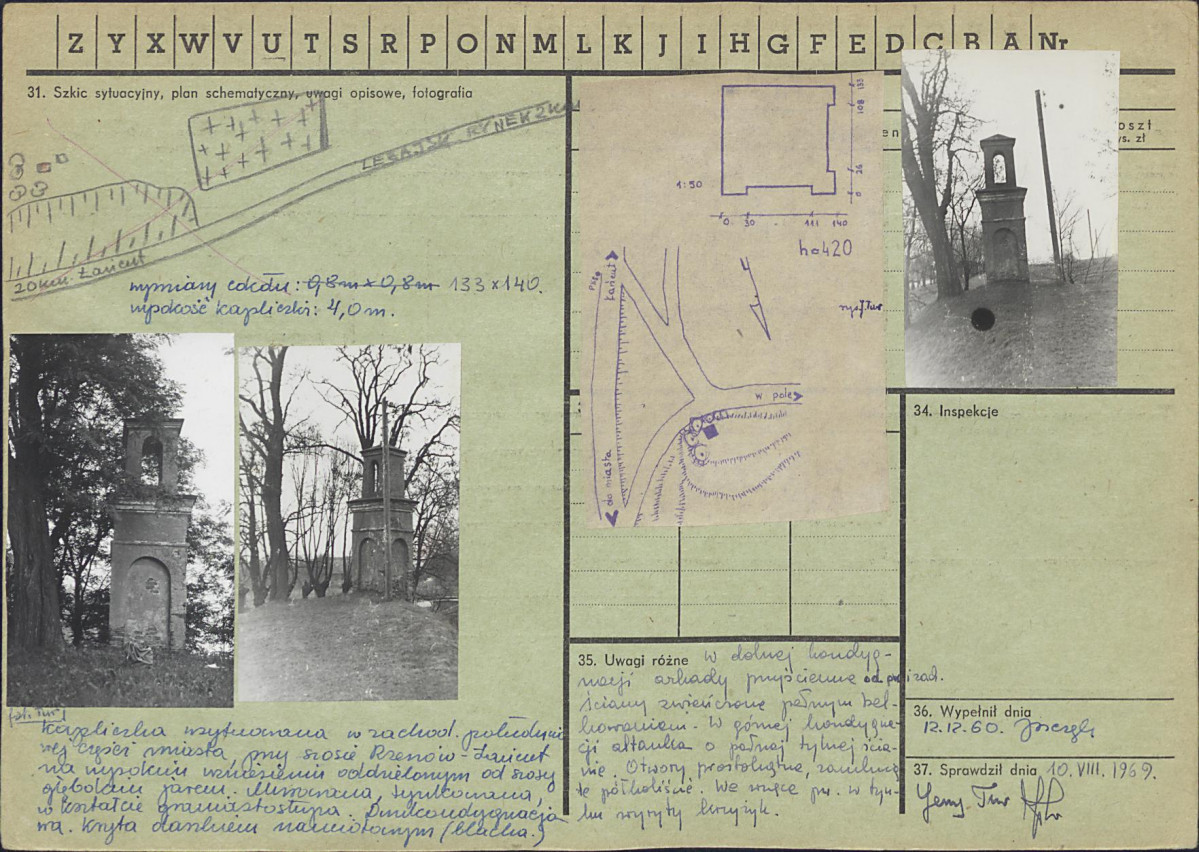 Z Y X W V U T S R P O N M L K J I H G F E D C B A Nr
31. Szkic sytuacyjny, plan schematyczny, uwagi opisowe, fotografia
LEŻAJSK. RYNEK 2KM
20km. Łańcut
wymiary cokółu: 0,8m x 0,8m 133 x 140.
wysokość kapliczki: 4,0 m.
fot. Tur
Kapliczka usytuowana w zachod. południo
wej części miasta, przy szosie Rzeszów-Łańcut
na wysokim wzniesieniu oddzielonym od szosy
głębokim jarem. Murowana, tynkowana,
w kształcie graniastosłupa. Dwukondygnacjo
wa. Kryta daszkiem namiotowym (blacha.)
1:50
0 26 108 133
0 30 111 140
h=420
rys J. Tur
Łańcut
w pole
do miasta
en
oszt
ys. zł
34. Inspekcje
35. Uwagi różne w dolnej kondyg-
nacji arkady przyścienne od przi zach.
ściany zwieńczone pełnym bel-
kowaniem. W górnej kondygna-
cji altanka o pełnej tylnej ścia-
nie. Otwory prostokątne, zamknię-
te półkoliście. We wnęce pn. w tyn-
ku wyryty krzyżyk.
36. Wypełnił dnia
12.12.60.
37. Sprawdził dnia 10. VIII. 1969.
Jerzy Tur